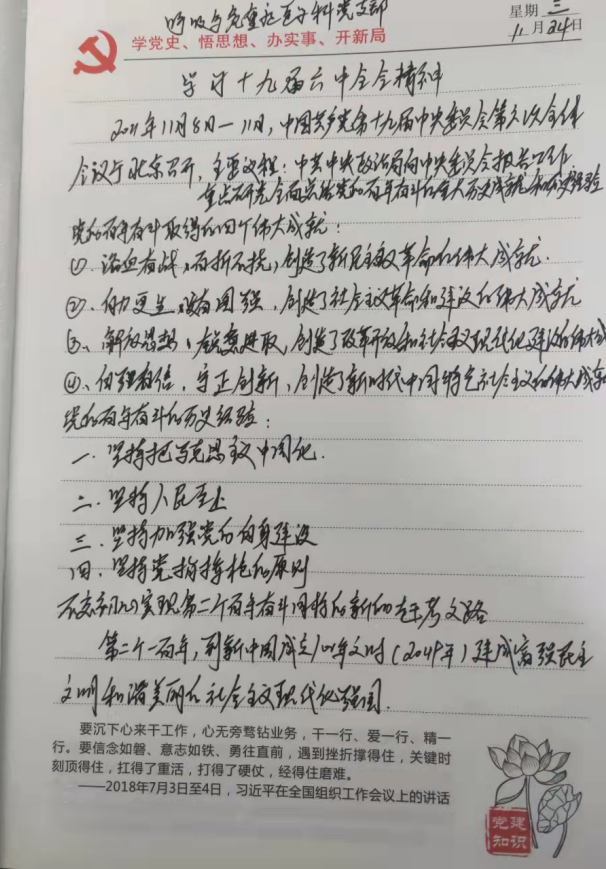 呼吸与危重症医学科党支部
星期三
学党史、悟思想、办实事、开新局
11月24日
学习十九届六中全会精神
2021年11月8日—11日,中国共产党第十九届中央委员会第六次全体
会议于北京召开,主要议程:中共中央政治局向中央委员会报告工作
重点研究全面总结党的百年奋斗的重大历史成就和历史经验
党的百年奋斗取得的四个伟大成就:
①、浴血奋战,百折不挠,创造了新民主主义革命的伟大成就.
②、自力更生,发奋图强,创造了社会主义革命和建设的伟大成就
③、解放思想,锐意进取,创造了改革开放和社会主义现代化建设的伟大成
④、自强自信,守正创新,创造了新时代中国特色社会主义的伟大成就
党的百年奋斗的历史经验:
一.坚持把马克思主义中国化.
二.坚持人民至上
三.坚持加强党的自身建设
四.坚持党指挥枪的原则
实现第二个百年奋斗目标的新的赶考之路
第二个一百年,到新中国成立100年之时(2049年)建成富强民主
文明和谐美丽的社会主义现代化强国.
要沉下心来干工作,心无旁骛钻业务,干一行、爱一行、精一
行。要信念如磐、意志如铁、勇往直前,遇到挫折撑得住,关键时
刻顶得住,扛得了重活,打得了硬仗,经得住磨难。
——2018年7月3日至4日,习近平在全国组织工作会议上的讲话
党建
知识